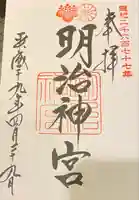 皇紀二千六百七十七年
奉拝
明治神宮
平成二十九年四月二十九日